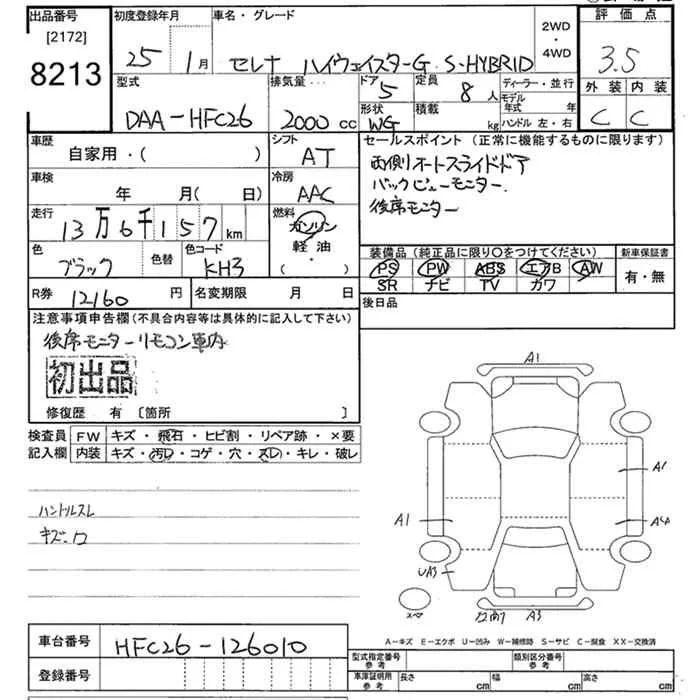 出品番号
[2172]
8213
初度登録年月
25 年 1 月
車名・グレード
セレナ ハイウェイスターG S-HYBRID
2WD
・
4WD
評価点
3.5
外装 内装
C C
型式
DAA-HFC26
排気量
2000 cc
ドア
5
形状
WG
定員
8 人
積載
kg
ディーラー・並行
モデル年式 年
ハンドル 左・右
車歴
自家用・( )
シフト
AT
車検
年 月( 日)
冷房
AAC
走行
13万6千157 km
燃料
ガソリン
軽油
・
( )
色
ブラック
色替
色コード
KH3
R券
12160 円
名変期限 月 日
セールスポイント(正常に機能するものに限ります)
両側オートスライドドア
バックビューモニター.
後席モニター
装備品(純正品に限り○をつけてください)
PS PW ABS エアB AW
SR ナビ TV カワ
新車保証書
有・無
後日品
注意事項申告欄(不具合内容等は具体的に記入して下さい)
後席モニターリモコン車内
初出品
修復歴 有 [箇所 ]
検査員
記入欄
FW キズ・飛石・ヒビ割・リペア跡・×要
内装 キズ・汚レ・コゲ・穴・スレ・キレ・破レ
ハンドルスレ
キズ.
A1
A1
A1
UA3
A3
A-キズ E-エクボ U-凹み W-補修跡 S-サビ C-腐食 XX-交換済
車台番号
HFC26-126010
登録番号
型式指定番号
参考
類別区分番号
参考
車庫証明用
参考
長さ cm
幅 cm
高さ cm